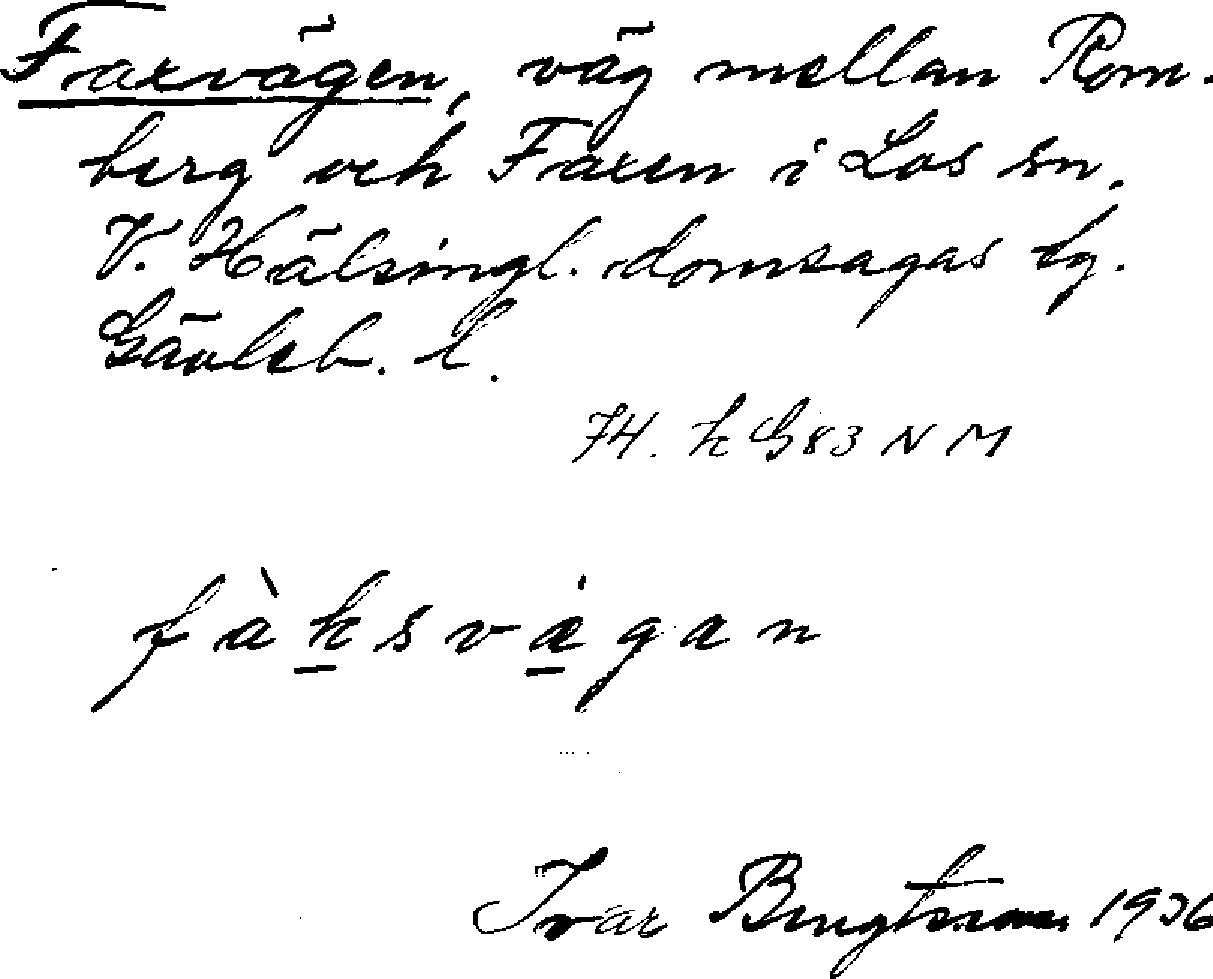 Faxvägen, väg mellan Rom-
berg och Faxen i Los sn.
V. Hälsingl. domsagas tg.
Gävleb. l.
74. k G83 N M
fàksvägan
Ivar Bengtsson 1936